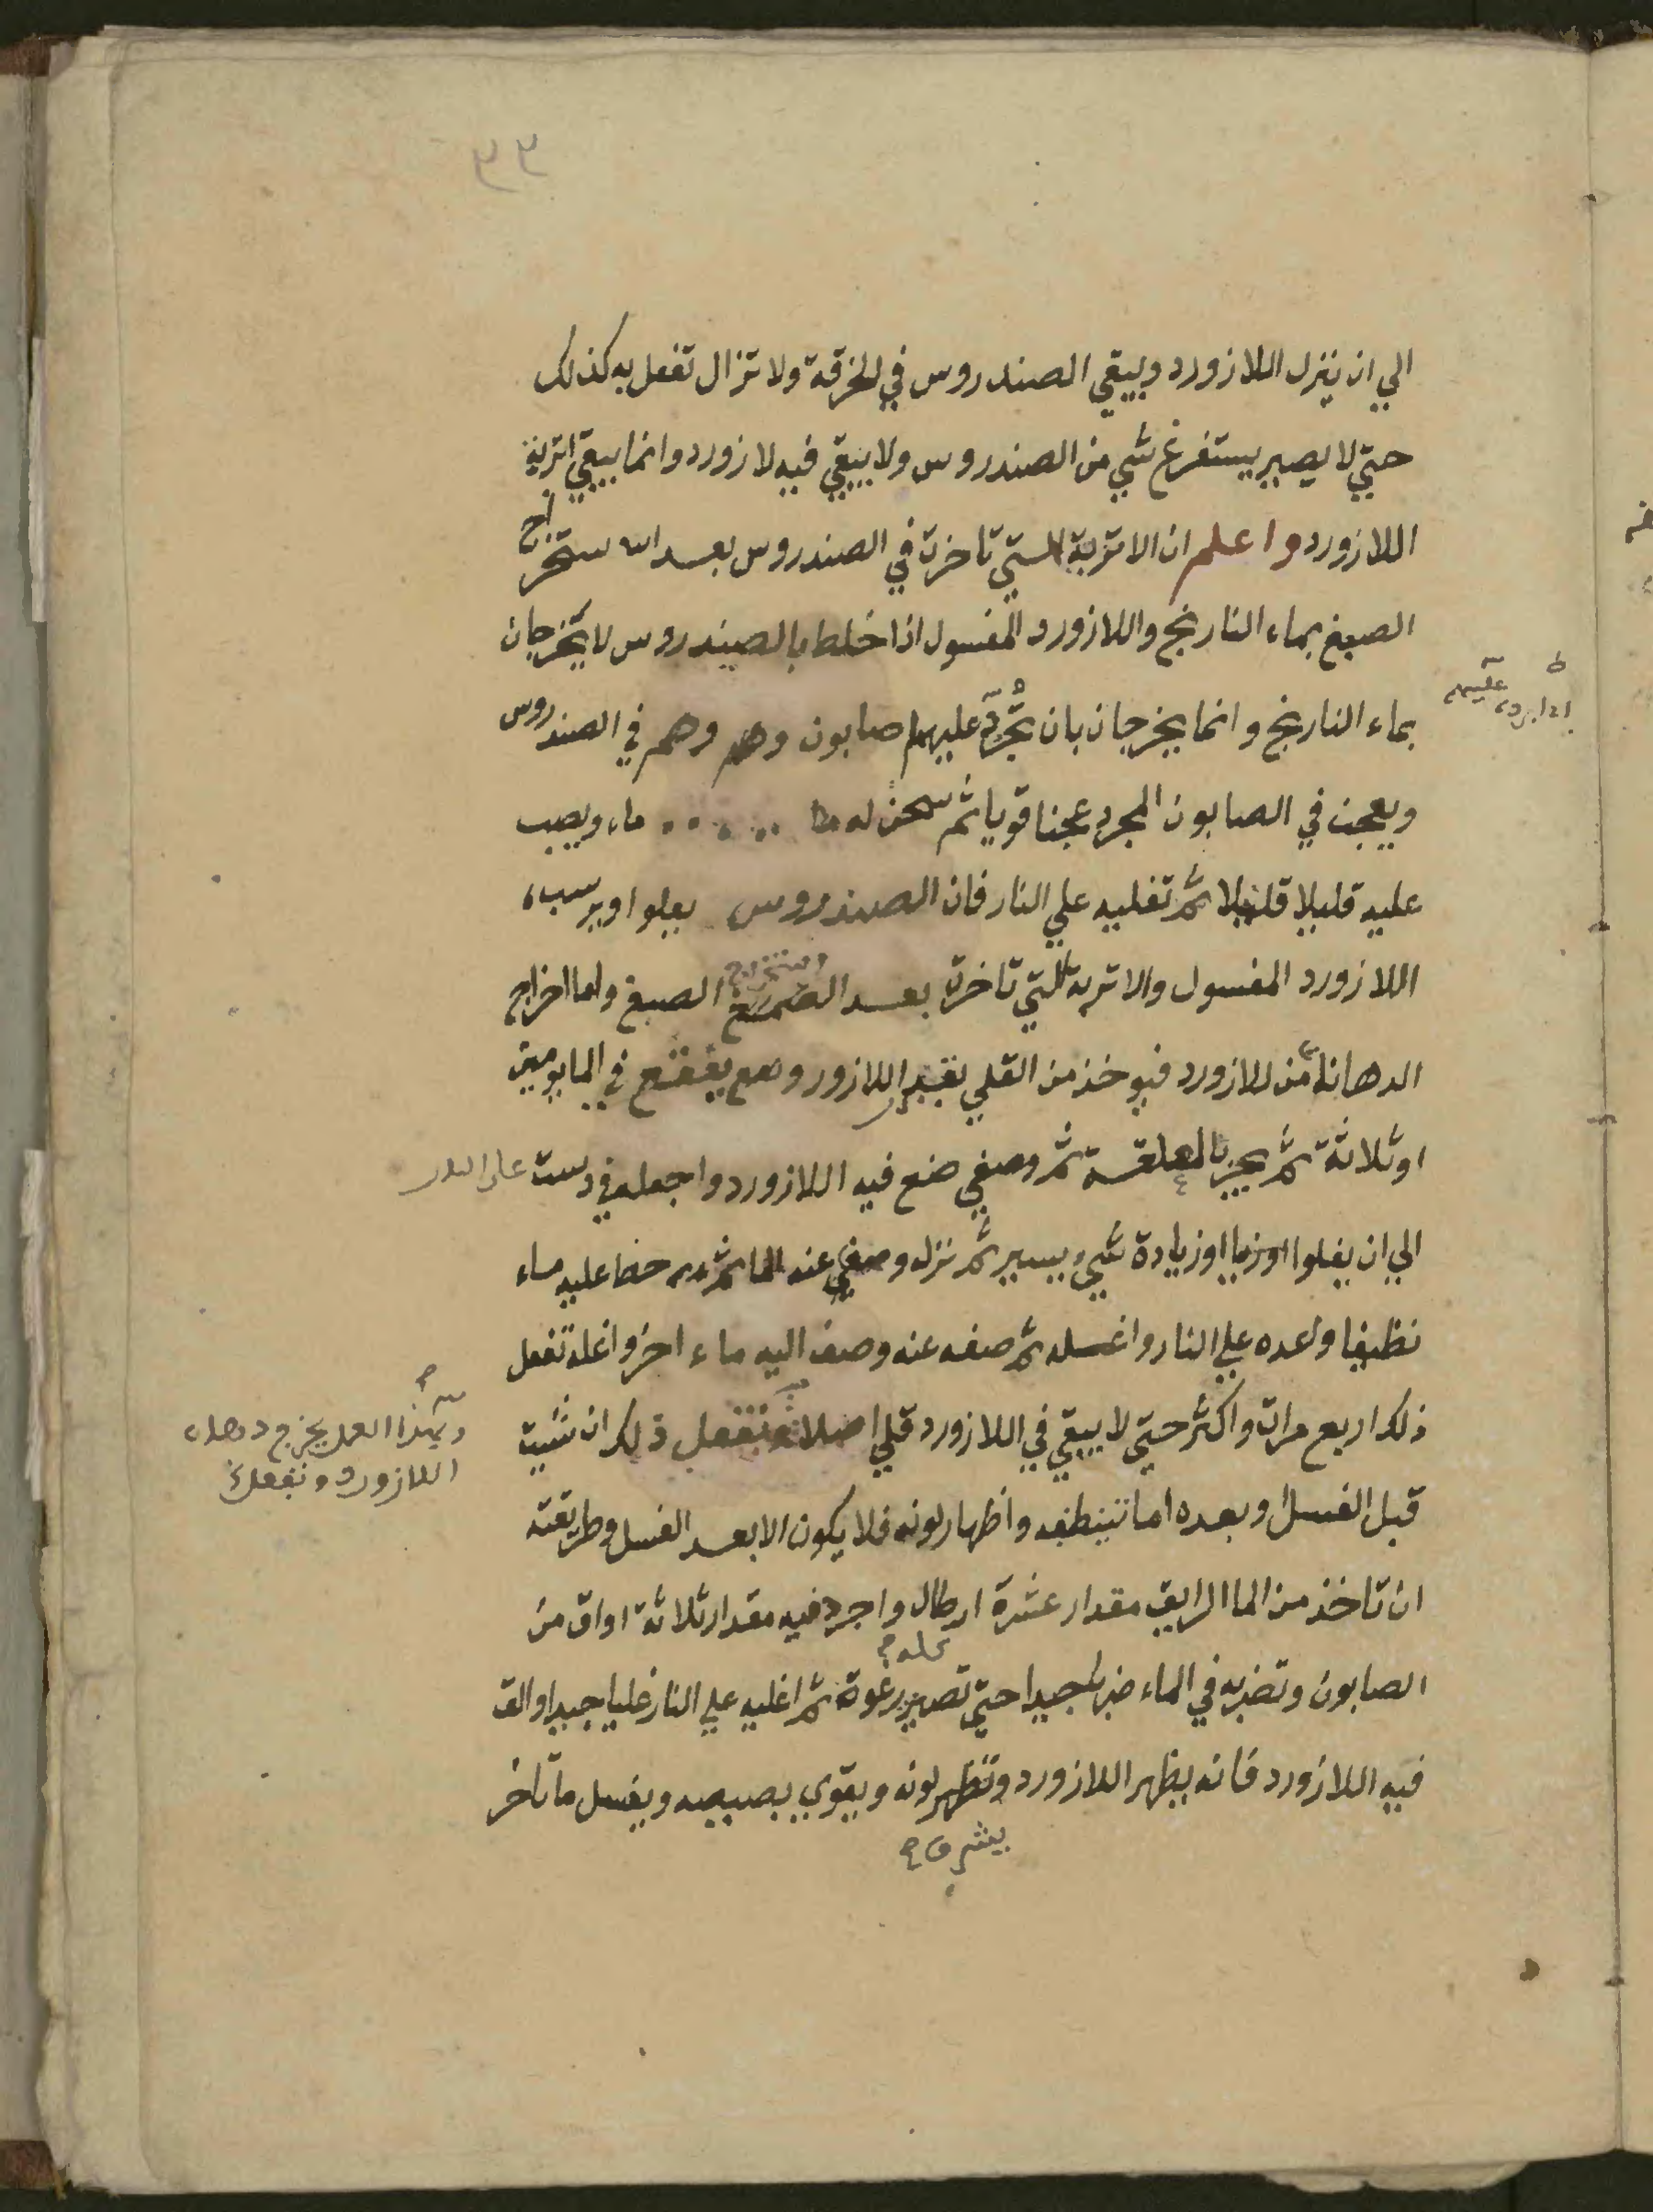 ٣٣
الي ان ينزل اللازورد ويبقي الصندروس في الخرقة ولا تزال تفعل به كذلك
حتي لا يصير يستفرغ شي من الصندروس ولا يبقي فيه لازورد وانما يبقي اتربة
اللازورد واعلم ان الاتربة التي تاخرت في الصندروس بعد استخراج
الصبغ بماء النارنج واللازورد المغسول اذا خلط بالصندروس لا يخرجان
بماء النارنج وانما يخرجان بان يجرد عليهما صابون وهم وهم في الصندروس
ويعجن في الصابون المجرد عجنا قويا ثم سخن له ماء ويصب
عليه قليلا قليلا ثم تغليه علي النار فان الصندروس يعلوا ويرسب
اللازورد المغسول والاتربة التي تاخرت بعد استخراج الصبغ واما اخراج
الدهانة من اللازورد فيوخذ من القلي بقدر اللازورد وينقع في الما يومين
او ثلاثة ثم بالعلقة ثم وصفي ضع فيه اللازورد واجعله في دست علي النار
الي ان يغلوا او زيادة شيء يسير ثم نزله وصفي عنه الما ثم حط عليه ماء
نظيفا واعده علي النار واغسله ثم صفه عنه وصف اليه ماء اخر واغله تفعل
ذلك اربع مرات واكثر حتي لا يبقي في اللازورد قلي اصلا وتفعل ذلك ان شيت
وبهذا العمل يخرج دهان
اللازورد وتفعل
قبل الغسل وبعده اما تنظيفه واظهار لونه فلا يكون الا بعد الغسل وطريقته
ان تاخذ من الما الرايق مقدار عشرة ارطال واجرد فيه مقدار ثلاثة اواق من
الصابون وتضربه في الماء ضربا جيدا حتي تصير كله رغوة ثم اغليه علي النار غليا جيدا والق
فيه اللازورد فانه يظهر اللازورد وتظهر لونه ويقوي بصيصه ويغسل ما تاخر
يشرق